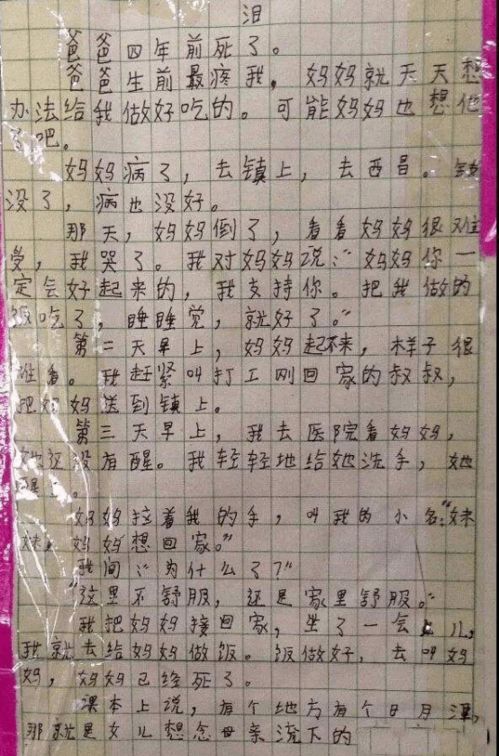 泪
爸爸四年前死了。
爸爸生前最疼我,妈妈就天天想
办法给我做好吃的。可能妈妈也想他
了吧。
妈妈病了,去镇上,去西昌。钱
没了,病也没好。
那天,妈妈倒了,看看妈妈很难
受,我哭了。我对妈妈说:“妈妈你一
定会好起来的,我支持你。把我做的
饭吃了,睡睡觉,就好了。”
第二天早上,妈妈起不来,样子很
难看。我赶紧叫打工刚回家的叔叔,
把妈妈送到镇上。
第三天早上,我去医院看妈妈,
她还没有醒。我轻轻地给她洗手,她
醒上。
妈妈拉着我的手,叫我的小名:“妹
妹,妈妈想回家。”
我问:“为什么了?”
“这里不舒服,还是家里舒服。”
我把妈妈接回家,坐了一会儿,
我就去给妈妈做饭。饭做好,去叫妈
妈,妈妈已经死了。
课本上说,有个地方有个日月潭,
那就是女儿想念母亲流下的